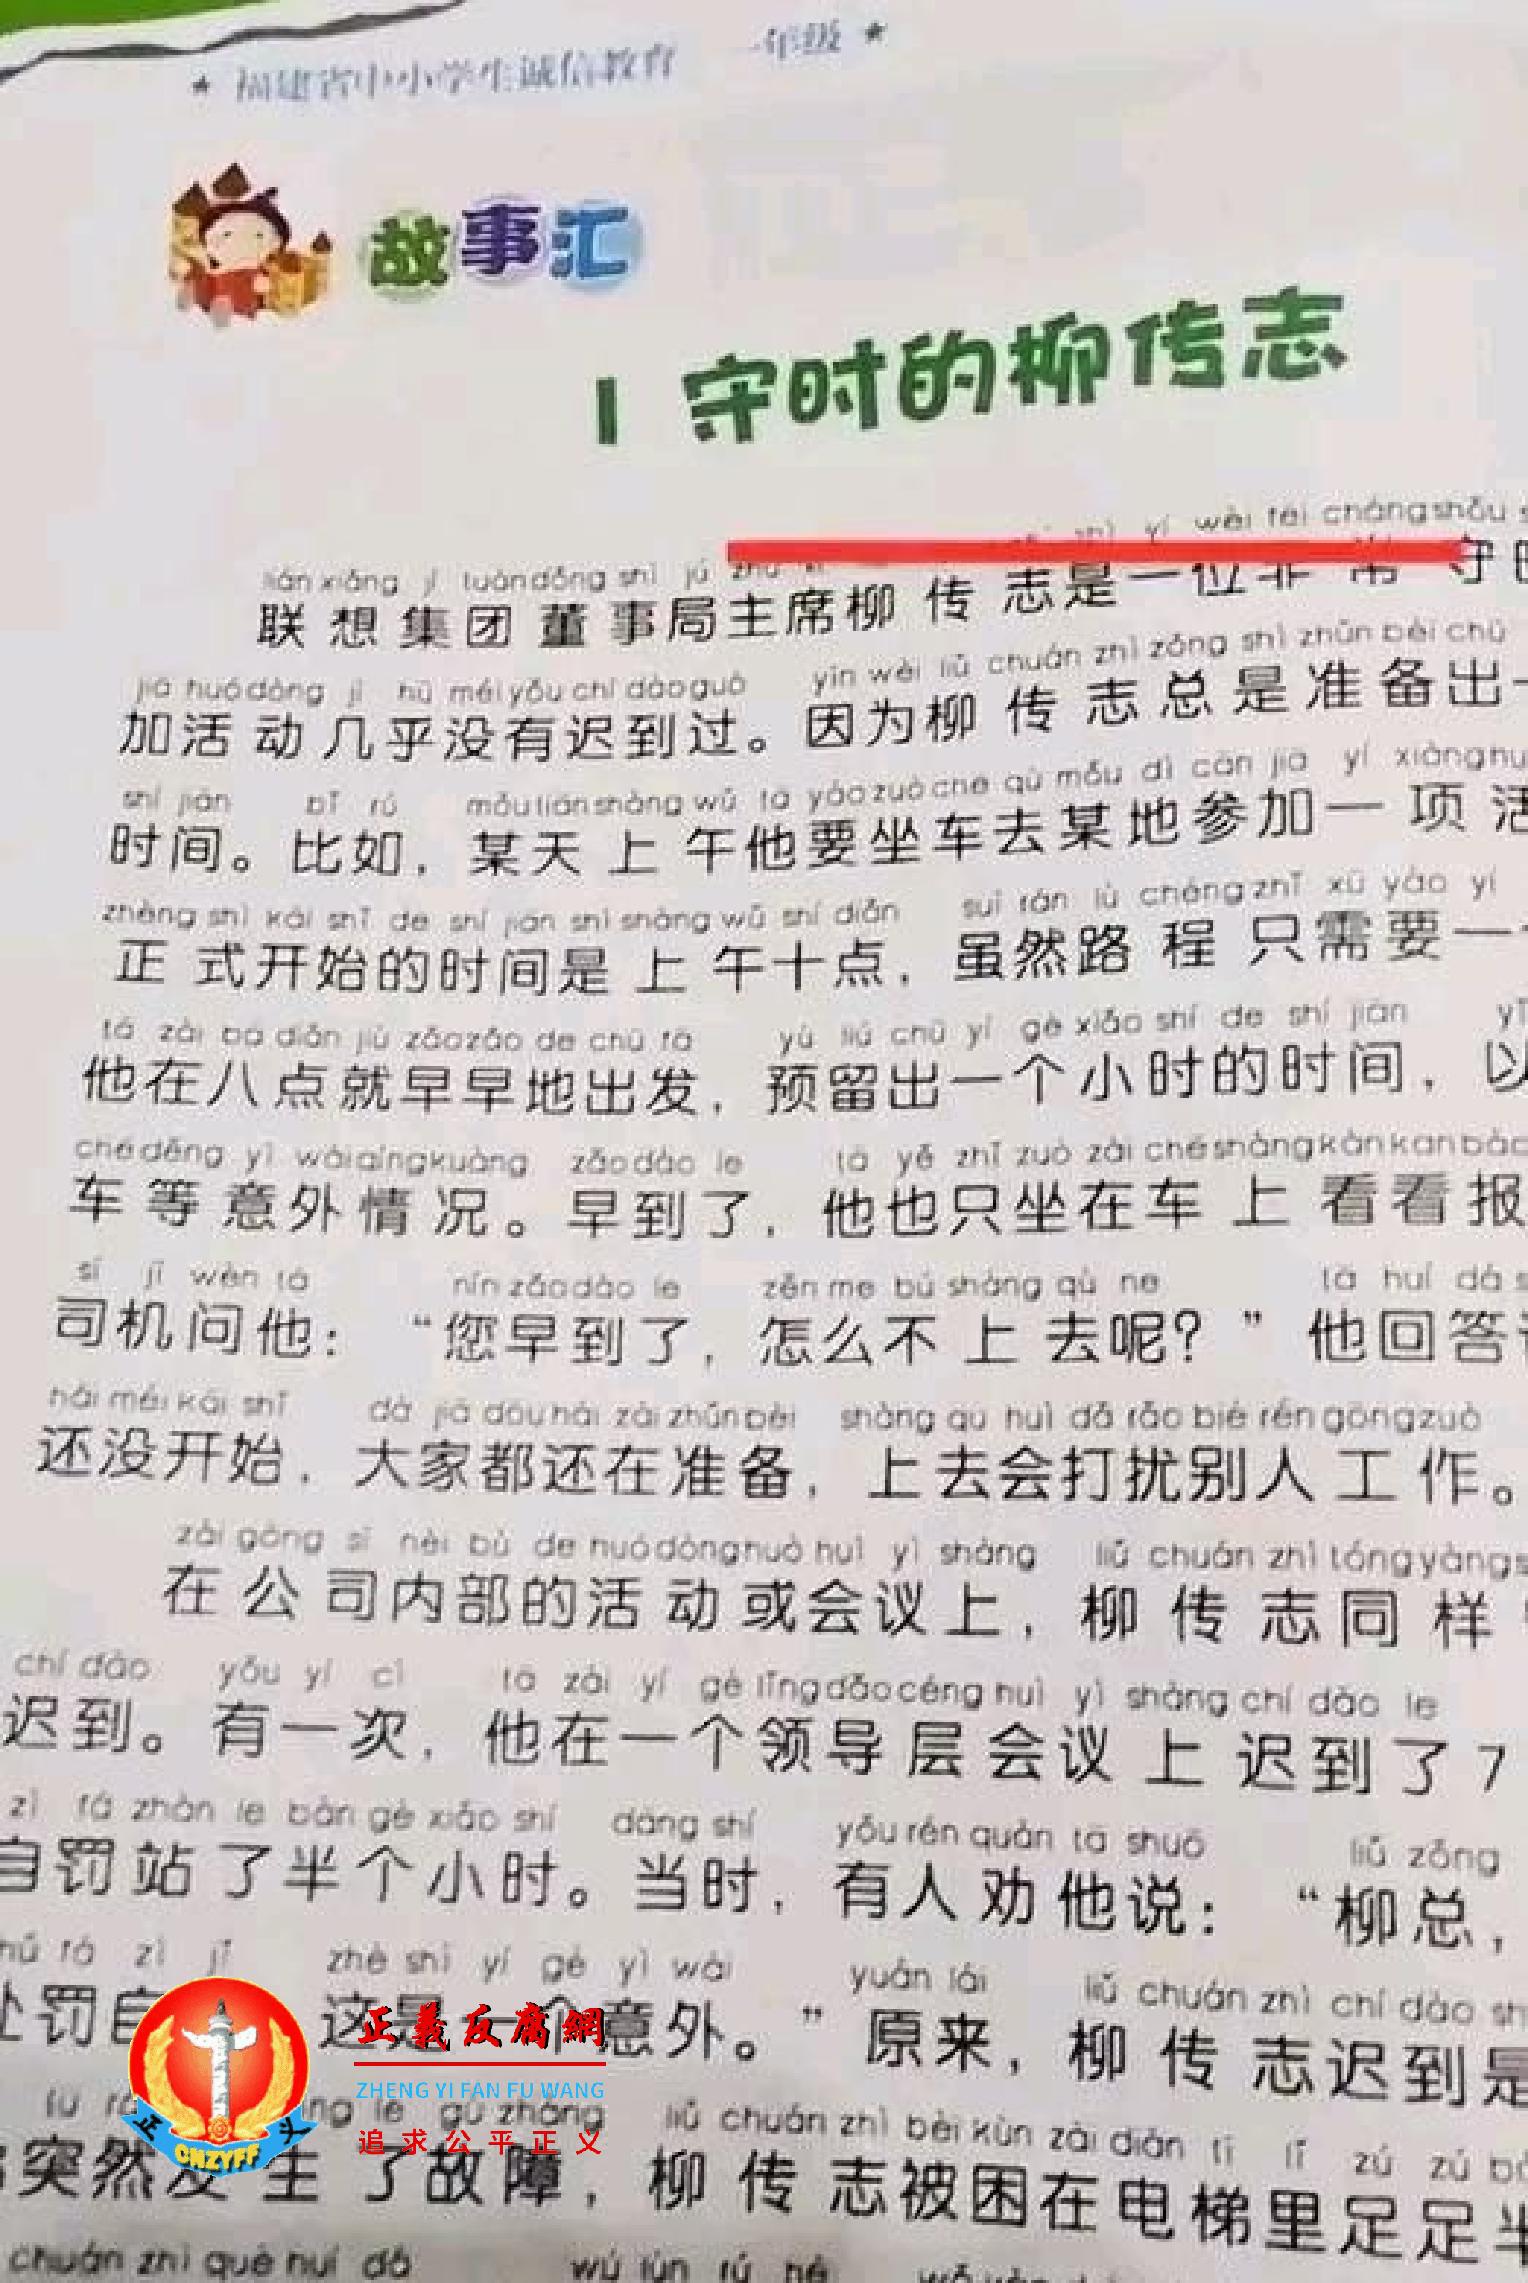 ★ 福建省中小学生诚信教育 一年级 ★
故事汇
1 守时的柳传志
wèi fēi cháng shǒu
lián xiǎng jí tuán dǒng shì jú zhǔ xí
联想集团董事局主席柳传志是一位非常守时
jiā huó dòng jī hū méi yǒu chí dào guò yīn wèi liǔ chuán zhì zǒng shì zhǔn bèi chū
加活动几乎没有迟到过。因为柳传志总是准备出一
shí jiān bǐ rú mǒu tiān shàng wǔ tā yào zuò chē qù mǒu dì cān jiā yí xiàng huó
时间。比如，某天上午他要坐车去某地参加一项活
zhèng shì kāi shǐ de shí jiān shì shàng wǔ shí diǎn suī rán lù chéng zhǐ xū yào yí
正式开始的时间是上午十点，虽然路程只需要一
tā zài bā diǎn jiù zǎo zǎo de chū fā yù liú chū yí gè xiǎo shí de shí jiān yǐ
他在八点就早早地出发，预留出一个小时的时间，以
chē děng yì wài qíng kuàng zǎo dào le tā yě zhǐ zuò zài chē shàng kàn kan bào
车等意外情况。早到了，他也只坐在车上看看报
sī jī wèn tā nín zǎo dào le zěn me bú shàng qù ne tā huí dá
司机问他：“您早到了，怎么不上去呢？”他回答
hái méi kāi shǐ dà jiā dōu hái zài zhǔn bèi shàng qù huì dǎ rǎo bié rén gōng zuò
还没开始，大家都还在准备，上去会打扰别人工作。
zài gōng sī nèi bù de huó dòng huò huì yì shàng liǔ chuán zhì tóng yàng
在公司内部的活动或会议上，柳传志同样
chí dào yǒu yí cì tā zài yí gè lǐng dǎo céng huì yì shàng chí dào le
迟到。有一次，他在一个领导层会议上迟到了7
zì fá zhàn le bàn gè xiǎo shí dāng shí yǒu rén quàn tā shuō liǔ zǒng
自罚站了半个小时。当时，有人劝他说：“柳总，
chǔ fá zì jǐ zhè shì yí gè yì wài yuán lái liǔ chuán zhì chí dào shì
处罚自 这是一个意外。”原来，柳传志迟到是
tū rán le gù zhàng liǔ chuán zhì bèi kùn zài diàn tī lǐ zú zú
突然发生了故障，柳传志被困在电梯里足足半
chuán zhì què huí dá wú lùn rú hé
正義反腐網
ZHENG YI FAN FU WANG
追求公平正义
正 CNZYFF 义